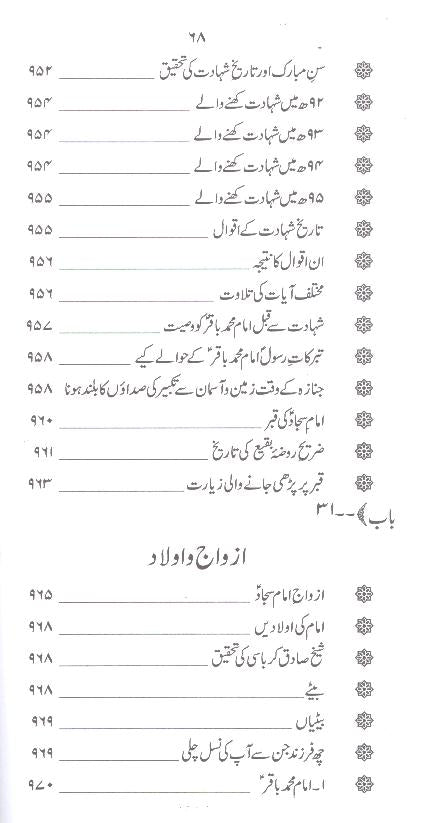 ۶۸
سنِ مبارک اور تاریخ شہادت کی تحقیق ۹۵۲
۹۲ھ میں شہادت کہنے والے ۹۵۴
۹۳ھ میں شہادت کہنے والے ۹۵۴
۹۴ھ میں شہادت کہنے والے ۹۵۴
۹۵ھ میں شہادت کہنے والے ۹۵۵
تاریخ شہادت کے اقوال ۹۵۵
ان اقوال کا نتیجہ ۹۵۶
مختلف آیات کی تلاوت ۹۵۶
شہادت سے قبل امام محمد باقرؑ کو وصیت ۹۵۷
تبرکاتِ رسولؐ امام محمد باقرؑ کے حوالے کیے ۹۵۸
جنازہ کے وقت زمین و آسمان سے تکبیر کی صداؤں کا بلند ہونا ۹۵۸
امام سجادؑ کی قبر ۹۶۰
ضریح روضۂ بقیع کی تاریخ ۹۶۱
قبر پر پڑھی جانے والی زیارت ۹۶۳
باب ﴾--۳۱
ازواج و اولاد
ازواج امام سجادؑ ۹۶۵
امام کی اولادیں ۹۶۸
شیخ صادق کرباسی کی تحقیق ۹۶۸
بیٹے ۹۶۸
بیٹیاں ۹۶۹
چھ فرزند جن سے آپ کی نسل چلی ۹۶۹
۱۔امام محمد باقرؑ ۹۷۰